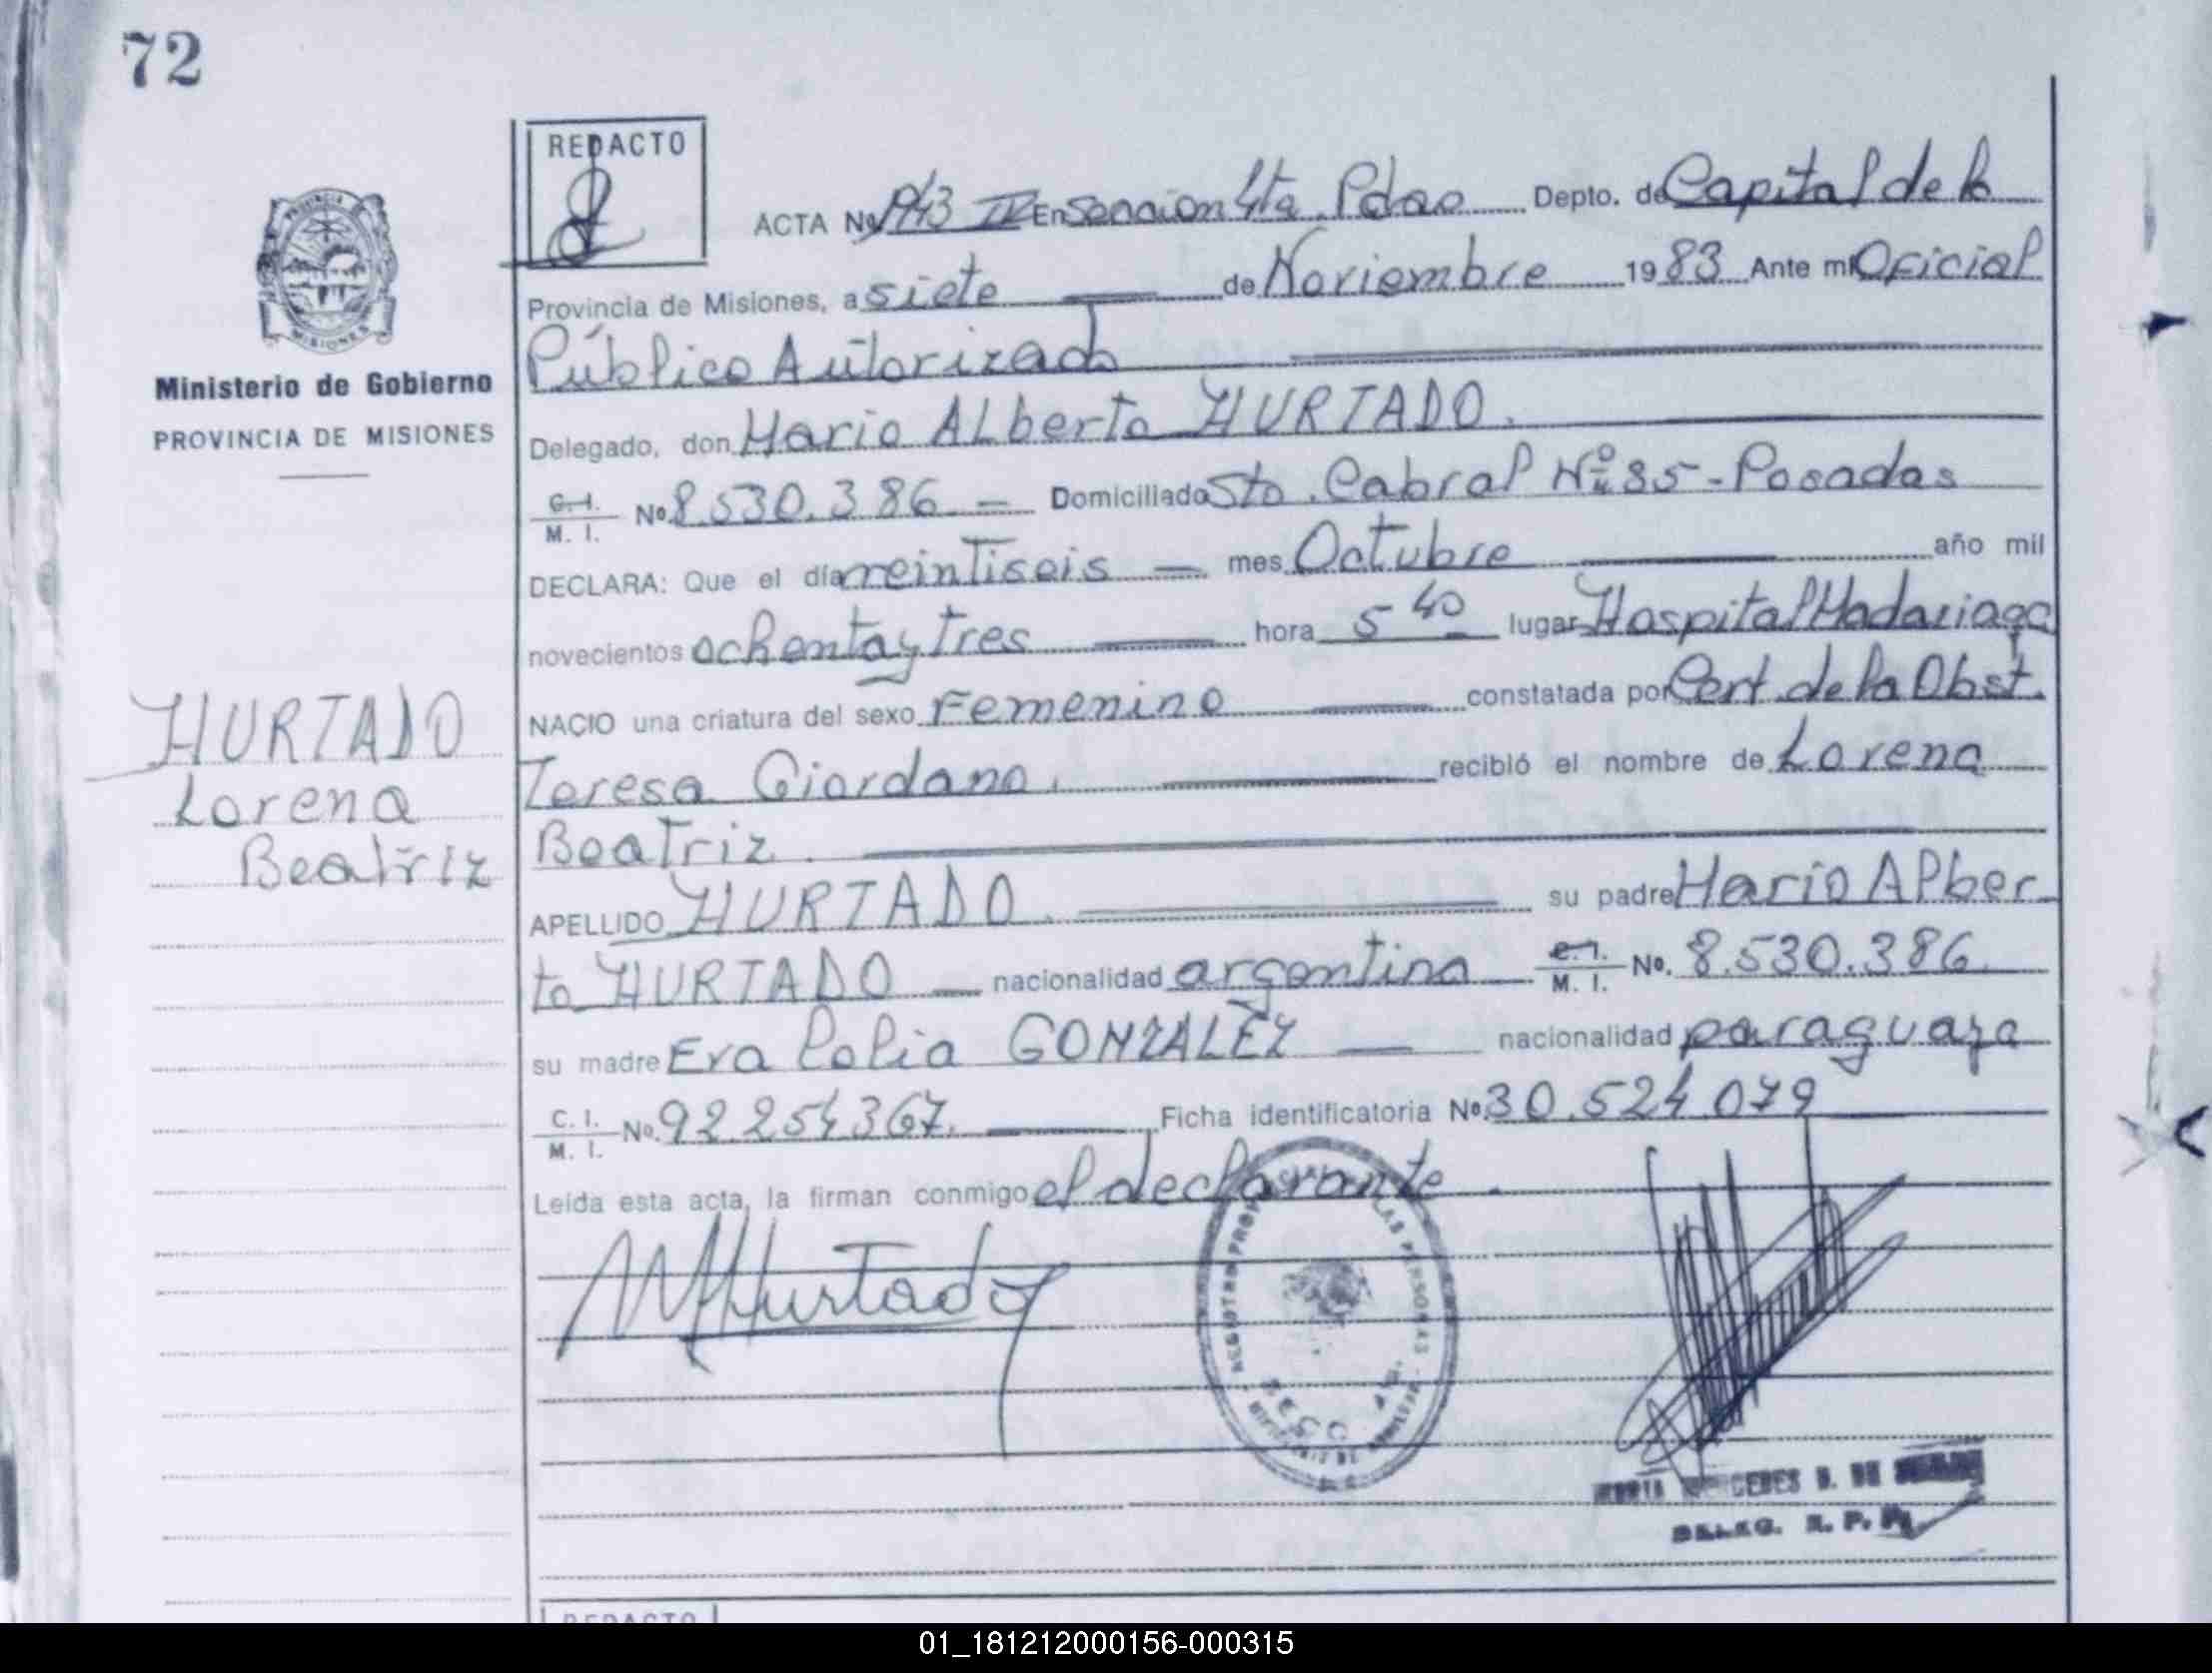 72
REDACTO
ACTA No 1143 IV En Seccion 4ta. Pdas Depto. de Capital de la
Provincia de Misiones, a siete de Noviembre 1983 Ante mi Oficial
Público Autorizado
Ministerio de Gobierno
PROVINCIA DE MISIONES
Delegado, don Mario Alberto HURTADO.
C. I. M. I. No 8.530.386 Domiciliado Sto. Cabral Nº 85 - Posadas
DECLARA: Que el día veintiseis mes Octubre año mil
novecientos ochenta y tres hora 5 40 lugar Hospital Madariaga
NACIO una criatura del sexo Femenino constatada por Cert. de la Obst.
HURTADO
Lorena
Beatriz
Teresa Giordano. recibló el nombre de Lorena
Beatriz.
APELLIDO HURTADO. su padre Mario Alber
to HURTADO nacionalidad argentina C. I. M. I. No. 8.530.386
su madre Eva Lelia GONZALEZ nacionalidad paraguaya
C. I. M. I. No. 92.254367. Ficha identificatoria No. 30.524.079
Leída esta acta, la firman conmigo el declarante.
MAHurtado
MERCEDES B. DE
DELEG. R. P. P.
REDACTO
01_181212000156-000315